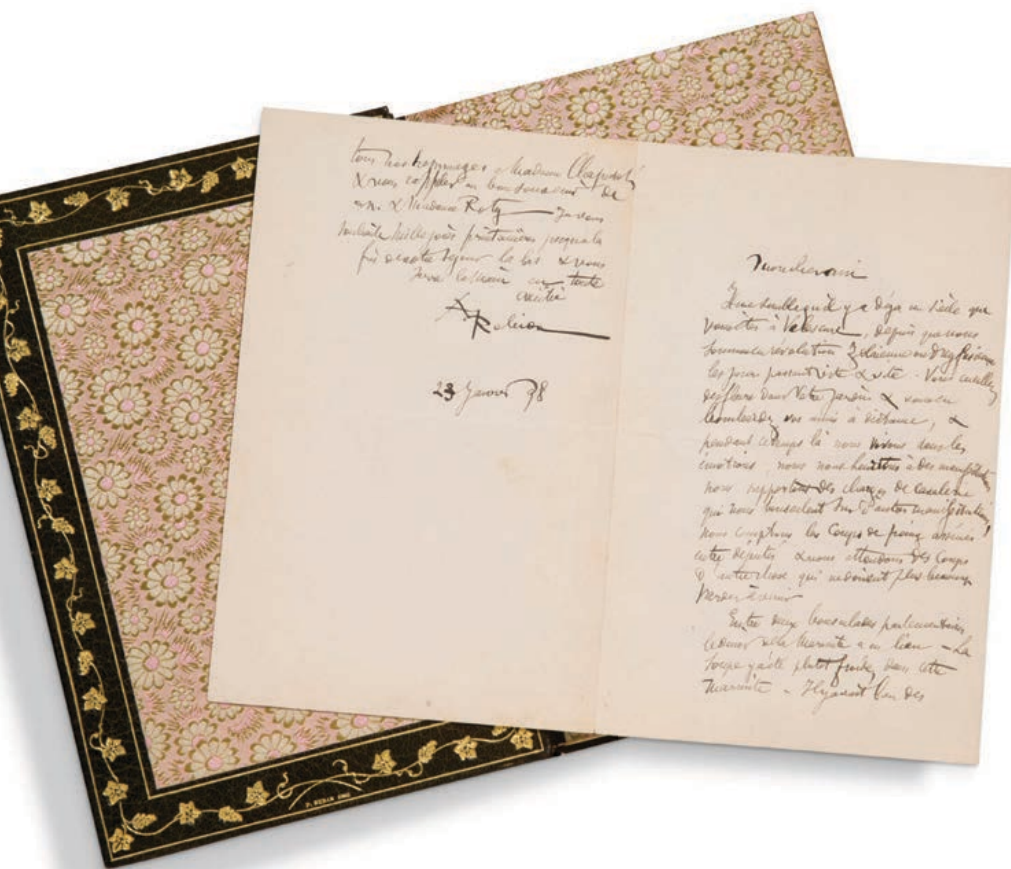 tous nos hommages à Madame
& nous rappeler au bon souvenir de
M. & Madame Roty — Je vous
souhaite mille joies printanières jusqu'à la
fin de votre séjour là bas & vous
serre la main en toute
amitié
A Robida
23 Janvier 98
Mon cher ami
Il me semble qu'il y a déjà un siècle que
vous êtes à Valescure, depuis que nous
sommes en révolution Zolaienne ou Dreyfusienne
les jours passent vite & vite. Vous cueillez
des fleurs dans votre jardin & vous en
bombardez vos amis à distance, &
pendant ce temps là nous vivons dans les
émotions, nous nous heurtons à des
nous supportons des charges de cavalerie
qui nous bousculent sur d'autres manifestations,
nous comptons les coups de poing assénés
entre députés & nous attendons des coups
d'autre chose qui ne doivent plus beaucoup
tarder à venir
Entre deux bousculades parlementaires
le dîner de la Marmite a eu lieu — La
soupe y a été plutôt froide, dans cette
marmite — Il y avait bien des
P. RUBAN